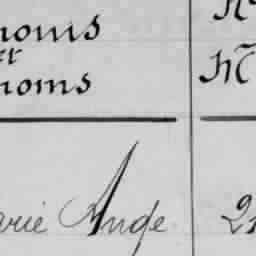 noms
et
noms
M
arie Ange 2